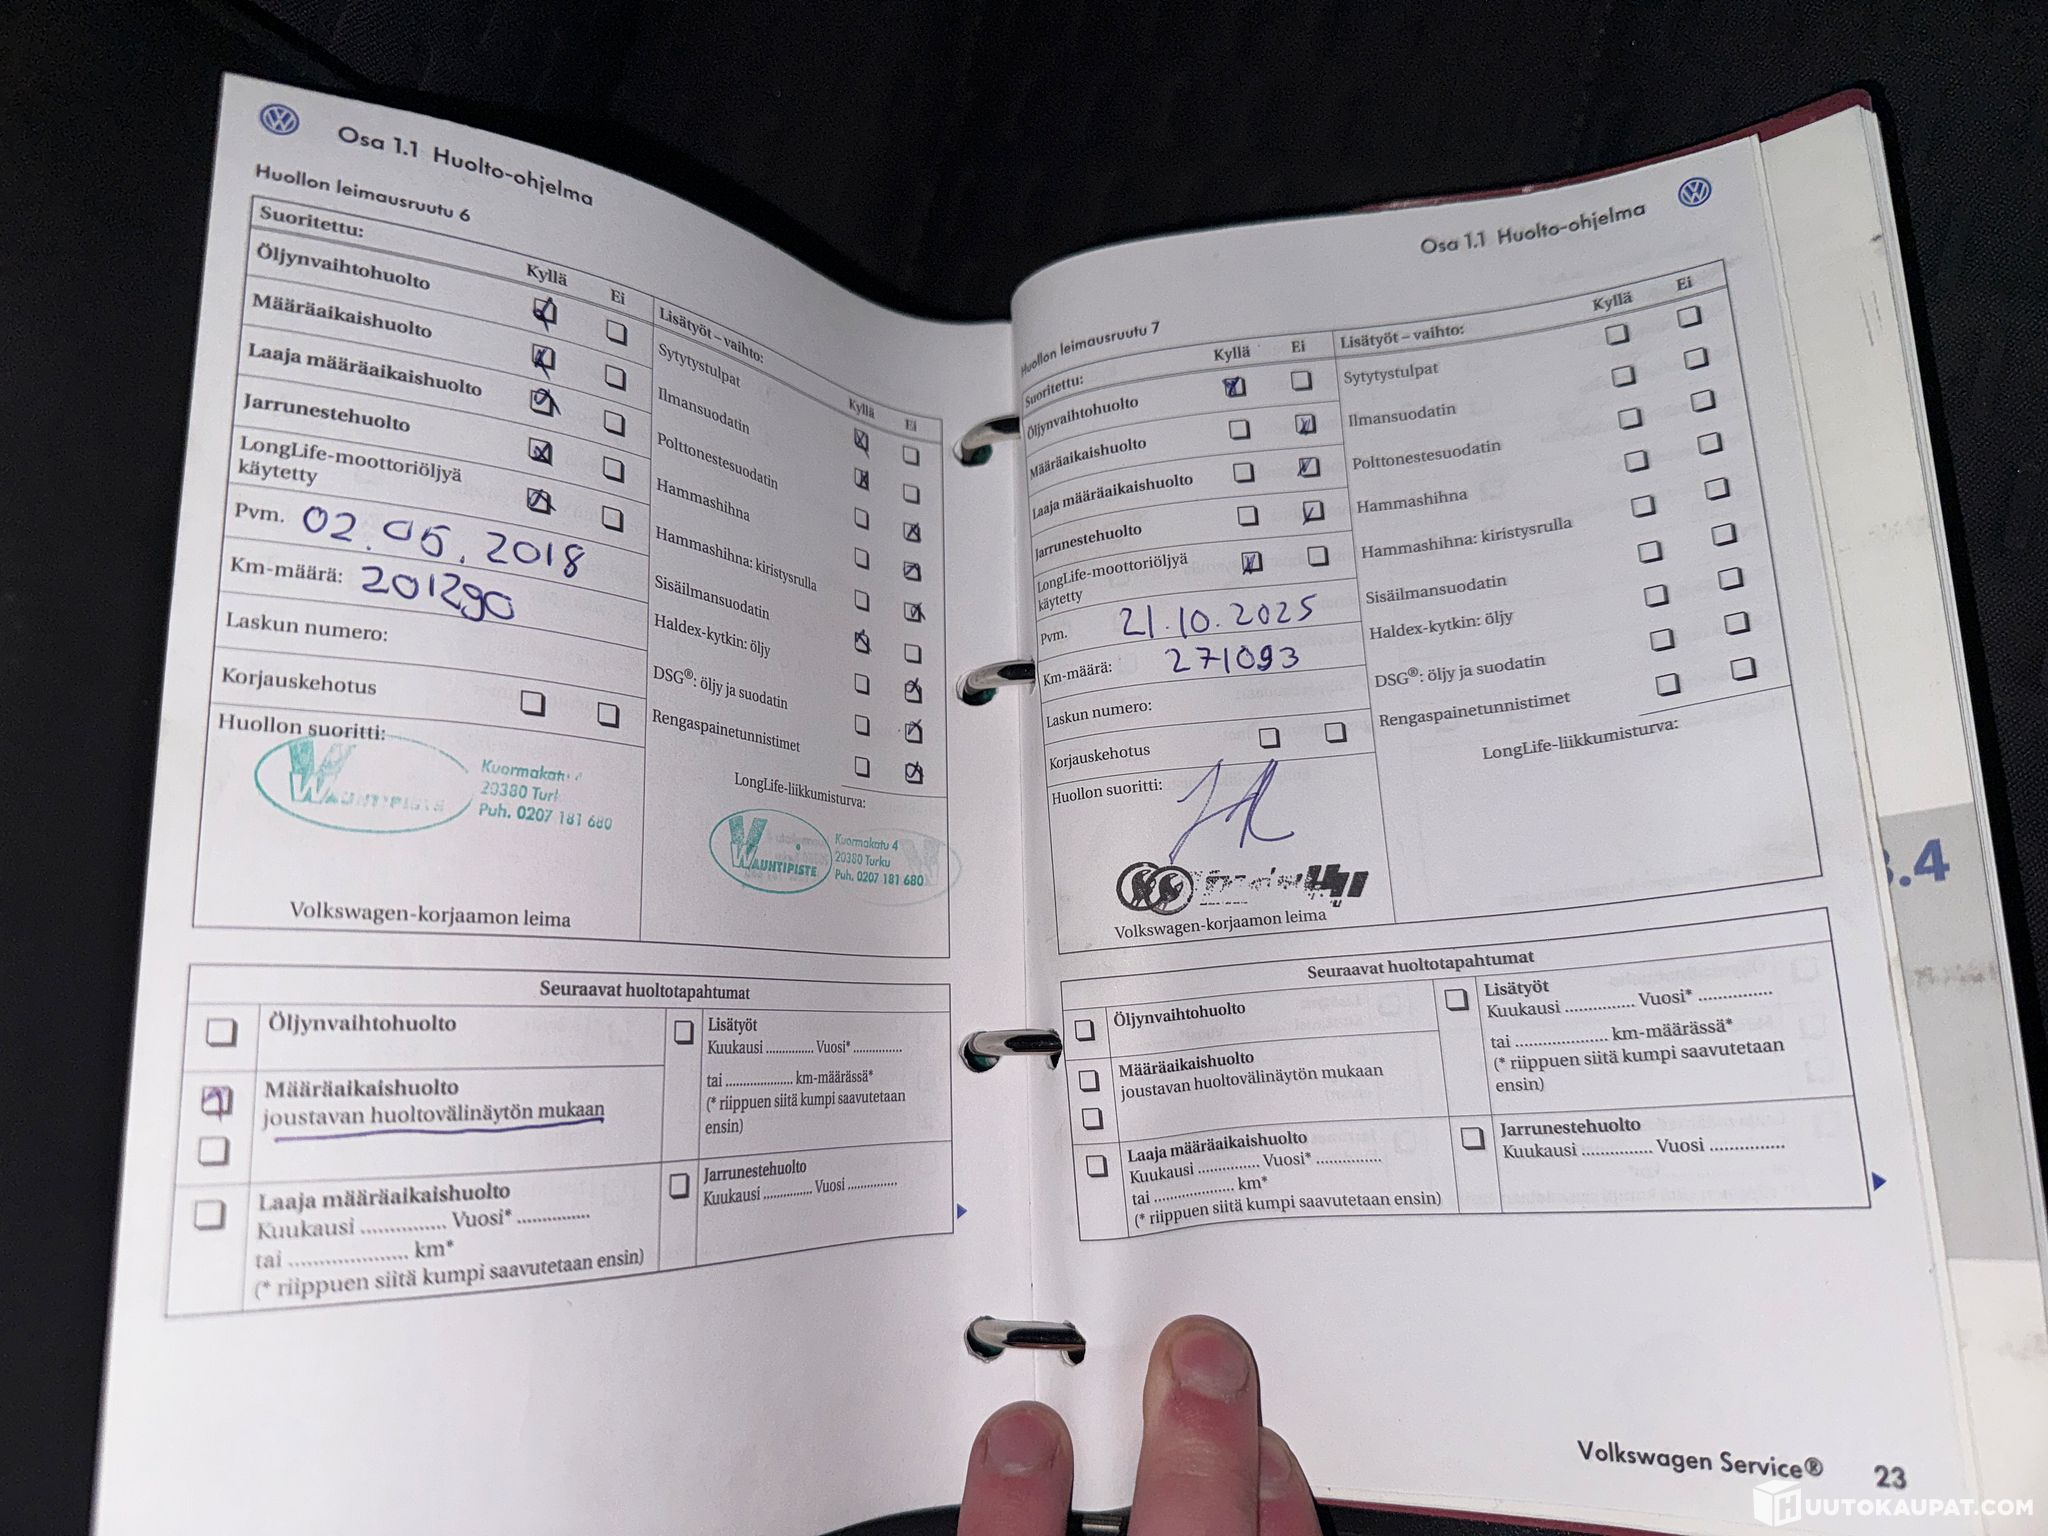 Osa 1.1 Huolto-ohjelma
Huollon leimausruutu 6
Suoritettu:
Kyllä Ei
Öljynvaihtohuolto
Määräaikaishuolto
Laaja määräaikaishuolto
Jarrunestehuolto
LongLife-moottoriöljyä
käytetty
Pvm. 02.05.2018
Km-määrä: 201290
Laskun numero:
Korjauskehotus
Huollon suoritti:
WAUHTIPISTE
Kuormakatu
20380
Puh. 0207 181 680
Volkswagen-korjaamon leima
Lisätyöt – vaihto:
Kyllä Ei
Sytytystulpat
Ilmansuodatin
Polttonestesuodatin
Hammashihna
Hammashihna: kiristysrulla
Sisäilmansuodatin
Haldex-kytkin: öljy
DSG®: öljy ja suodatin
Rengaspainetunnistimet
LongLife-liikkumisturva:
WAUHTIPISTE
Kuormakatu 4
20380 Turku
Puh. 0207 181 680
Seuraavat huoltotapahtumat
Öljynvaihtohuolto
Määräaikaishuolto
joustavan huoltovälinäytön mukaan
Laaja määräaikaishuolto
Kuukausi ............... Vuosi* .............
tai ..................... km*
(* riippuen siitä kumpi saavutetaan ensin)
Lisätyöt
Kuukausi .............. Vuosi* ..............
tai ..................... km-määrässä*
(* riippuen siitä kumpi saavutetaan
ensin)
Jarrunestehuolto
Kuukausi .............. Vuosi ..............
Osa 1.1 Huolto-ohjelma
Huollon leimausruutu 7
Suoritettu:
Kyllä Ei
Öljynvaihtohuolto
Määräaikaishuolto
Laaja määräaikaishuolto
Jarrunestehuolto
LongLife-moottoriöljyä
käytetty
Pvm. 21.10.2025
Km-määrä: 271093
Laskun numero:
Korjauskehotus
Huollon suoritti:
Volkswagen-korjaamon leima
Lisätyöt – vaihto:
Kyllä Ei
Sytytystulpat
Ilmansuodatin
Polttonestesuodatin
Hammashihna
Hammashihna: kiristysrulla
Sisäilmansuodatin
Haldex-kytkin: öljy
DSG®: öljy ja suodatin
Rengaspainetunnistimet
LongLife-liikkumisturva:
Seuraavat huoltotapahtumat
Öljynvaihtohuolto
Määräaikaishuolto
joustavan huoltovälinäytön mukaan
Laaja määräaikaishuolto
Kuukausi ............... Vuosi* ...............
tai .................... km*
(* riippuen siitä kumpi saavutetaan ensin)
Lisätyöt
Kuukausi .............. Vuosi* ...............
tai ..................... km-määrässä*
(* riippuen siitä kumpi saavutetaan
ensin)
Jarrunestehuolto
Kuukausi ............... Vuosi ...............
Volkswagen Service® 23
.4
HUUTOKAUPAT.COM